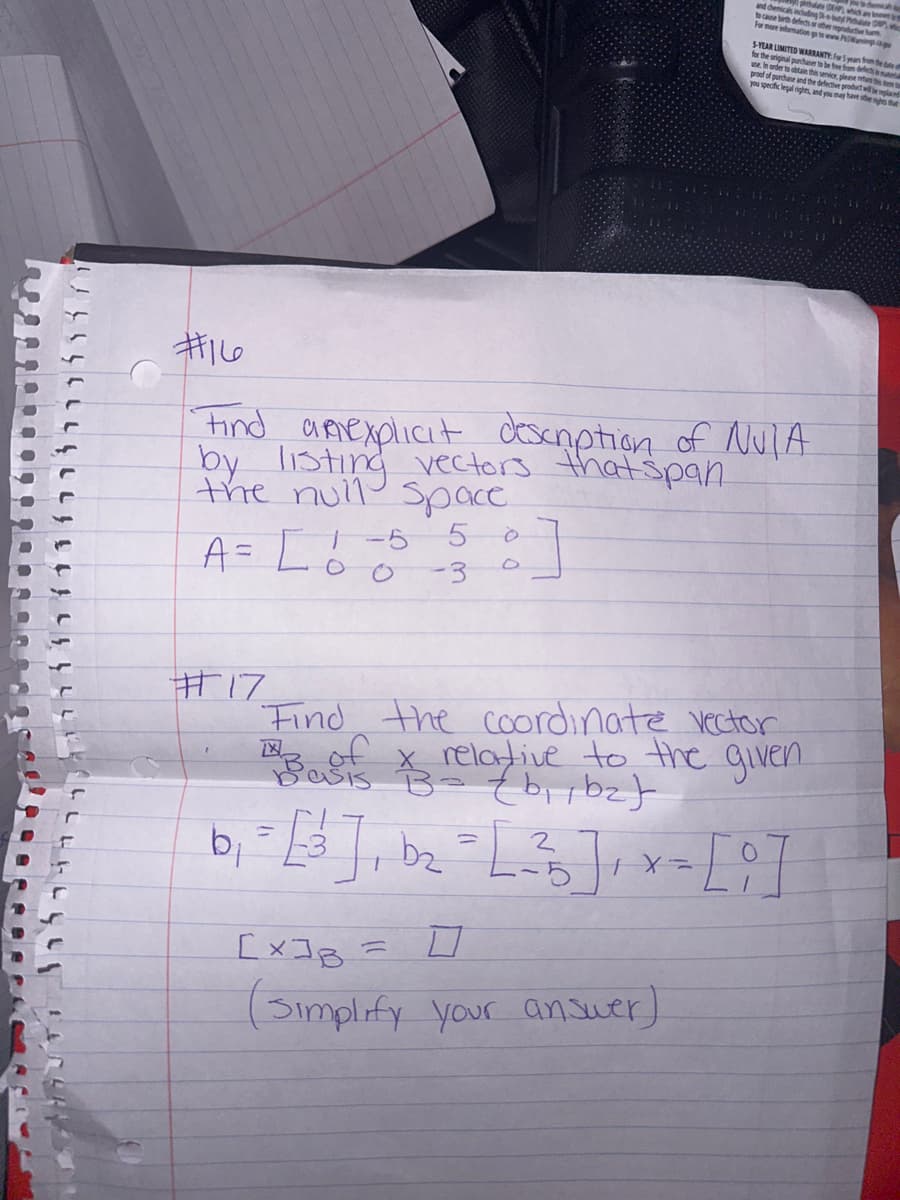 phthalate (DEHP), which are known to
and chemicals including Di-n-butyl Phthalate (DBP),
to cause birth defects or other reproductive harm.
For more information go to www.P65Warnings.ca.gov
5-YEAR LIMITED WARRANTY: For 5 years from the date of
for the original purchaser to be free from defects in material
use. In order to obtain this service, please return this item to
proof of purchase and the defective product will be replaced
you specific legal rights, and you may have other rights that
#16
Find an explicit description of Nul A
by listing vectors that span
the null space
A = [ 1 -5 5 0
0 0 -3 0 ]
#17
Find the coordinate vector
[x]B of x relative to the given
Basis B = {b1, b2}
b1 = [ 1 -3 ], b2 = [ 2 -5 ], x = [ 0 1 ]
[x]B = □
(simplify your answer)